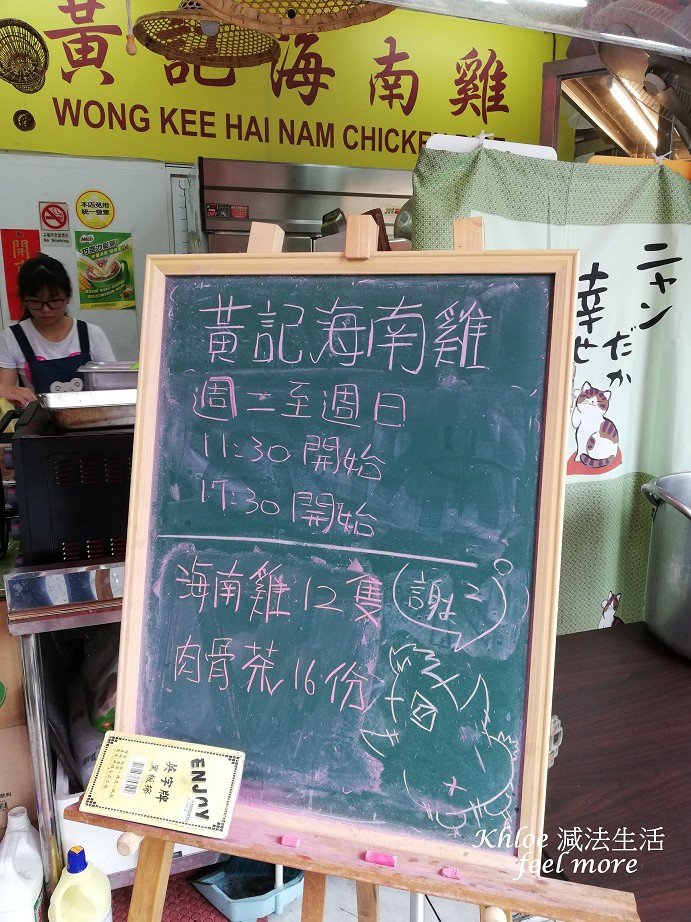 黃記海南雞
WONG KEE HAI NAM CHICKEN
本店免用
統一發票
No Smoking
ニャン
だか
幸せ
黃記海南雞
週二至週日
11:30 開始
17:30 開始
海南雞 12隻
謝
肉骨茶 16份
ENJOY
英字牌
黑板擦
Khloe 減法生活
feel more